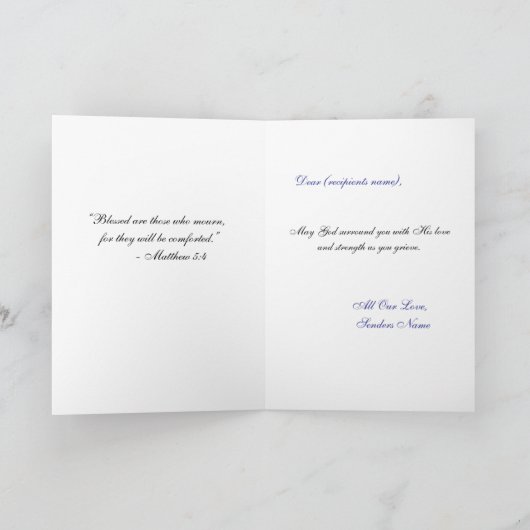 “Blessed are those who mourn,
for they will be comforted.”
- Matthew 5:4
Dear (recipients name),
May God surround you with His love
and strength us you grieve.
All Our Love,
Senders Name